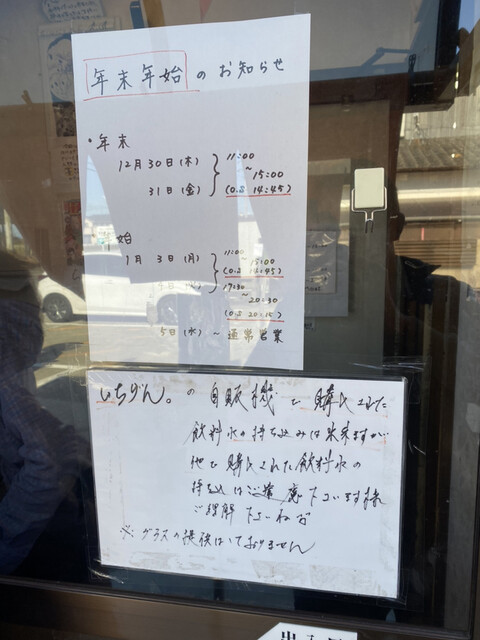 年末年始のお知らせ
・年末
12月30日(木) 11:00
～15:00
31日(金) (O.S 14:45)
始
1月3日(月) 11:00
～15:00
(O.S 14:45)
17:30
～20:30
(O.S 20:15)
5日(水)～通常営業
いちげん。の自販機で購入された
飲料水の持ち込みは出来ますが
他で購入された飲料水の
持ち込はご遠慮下さいます様
ご理解下さいませ
※グラスの提供はしておりません